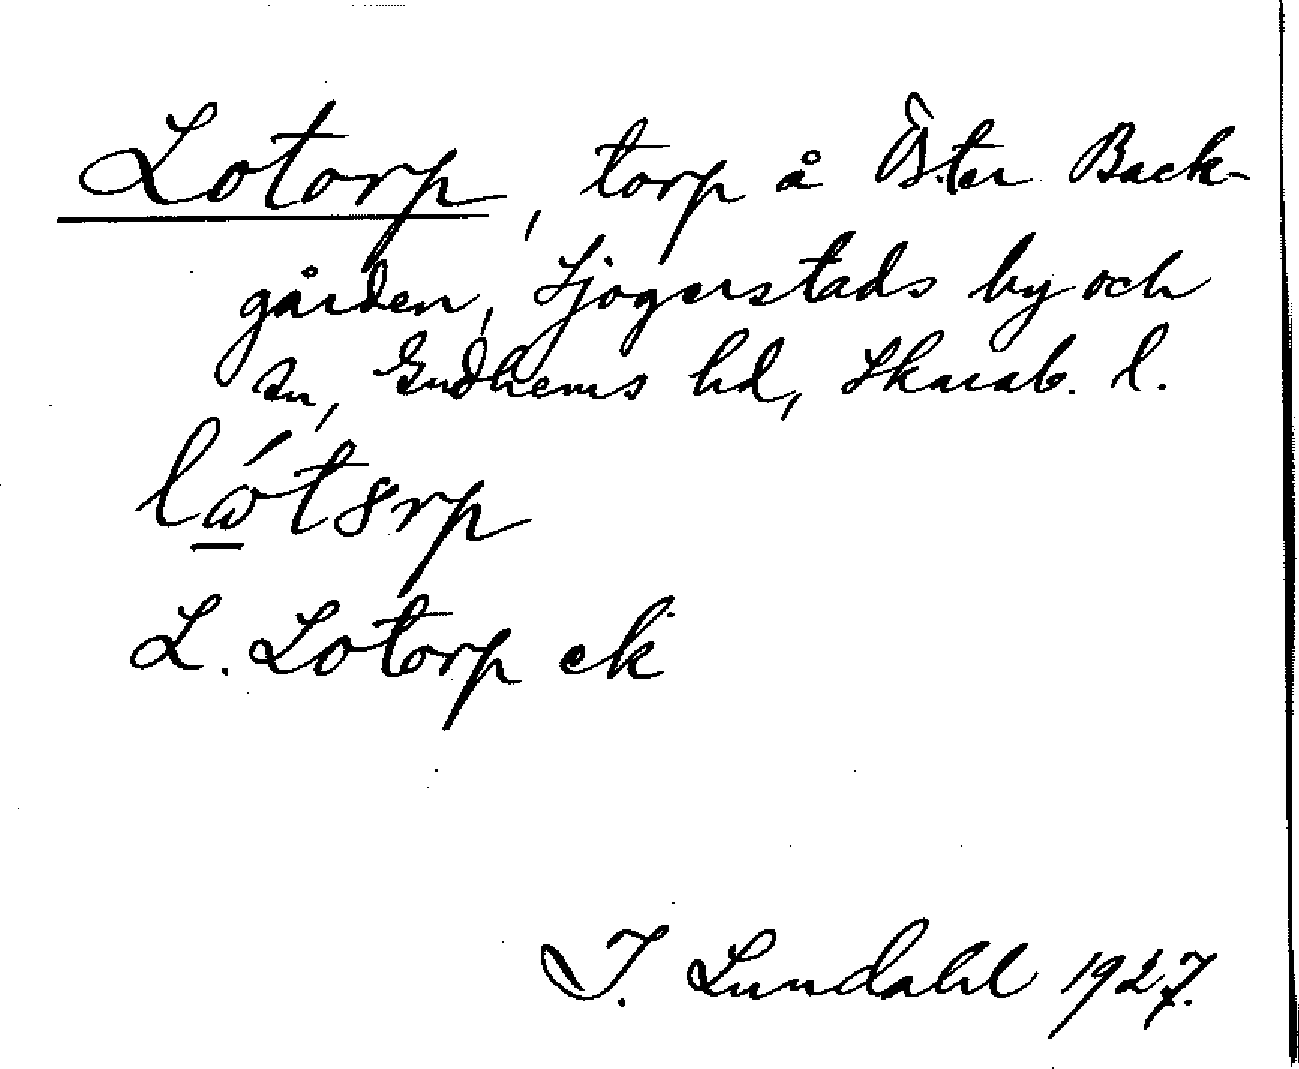 Lotorp, torp å Öster Back-
gården, Sjogerstads by och
sn, Gudhems hd, Skarab. l.
lώt8rp
L. Lotorp ek
I. Lundahl 1927.